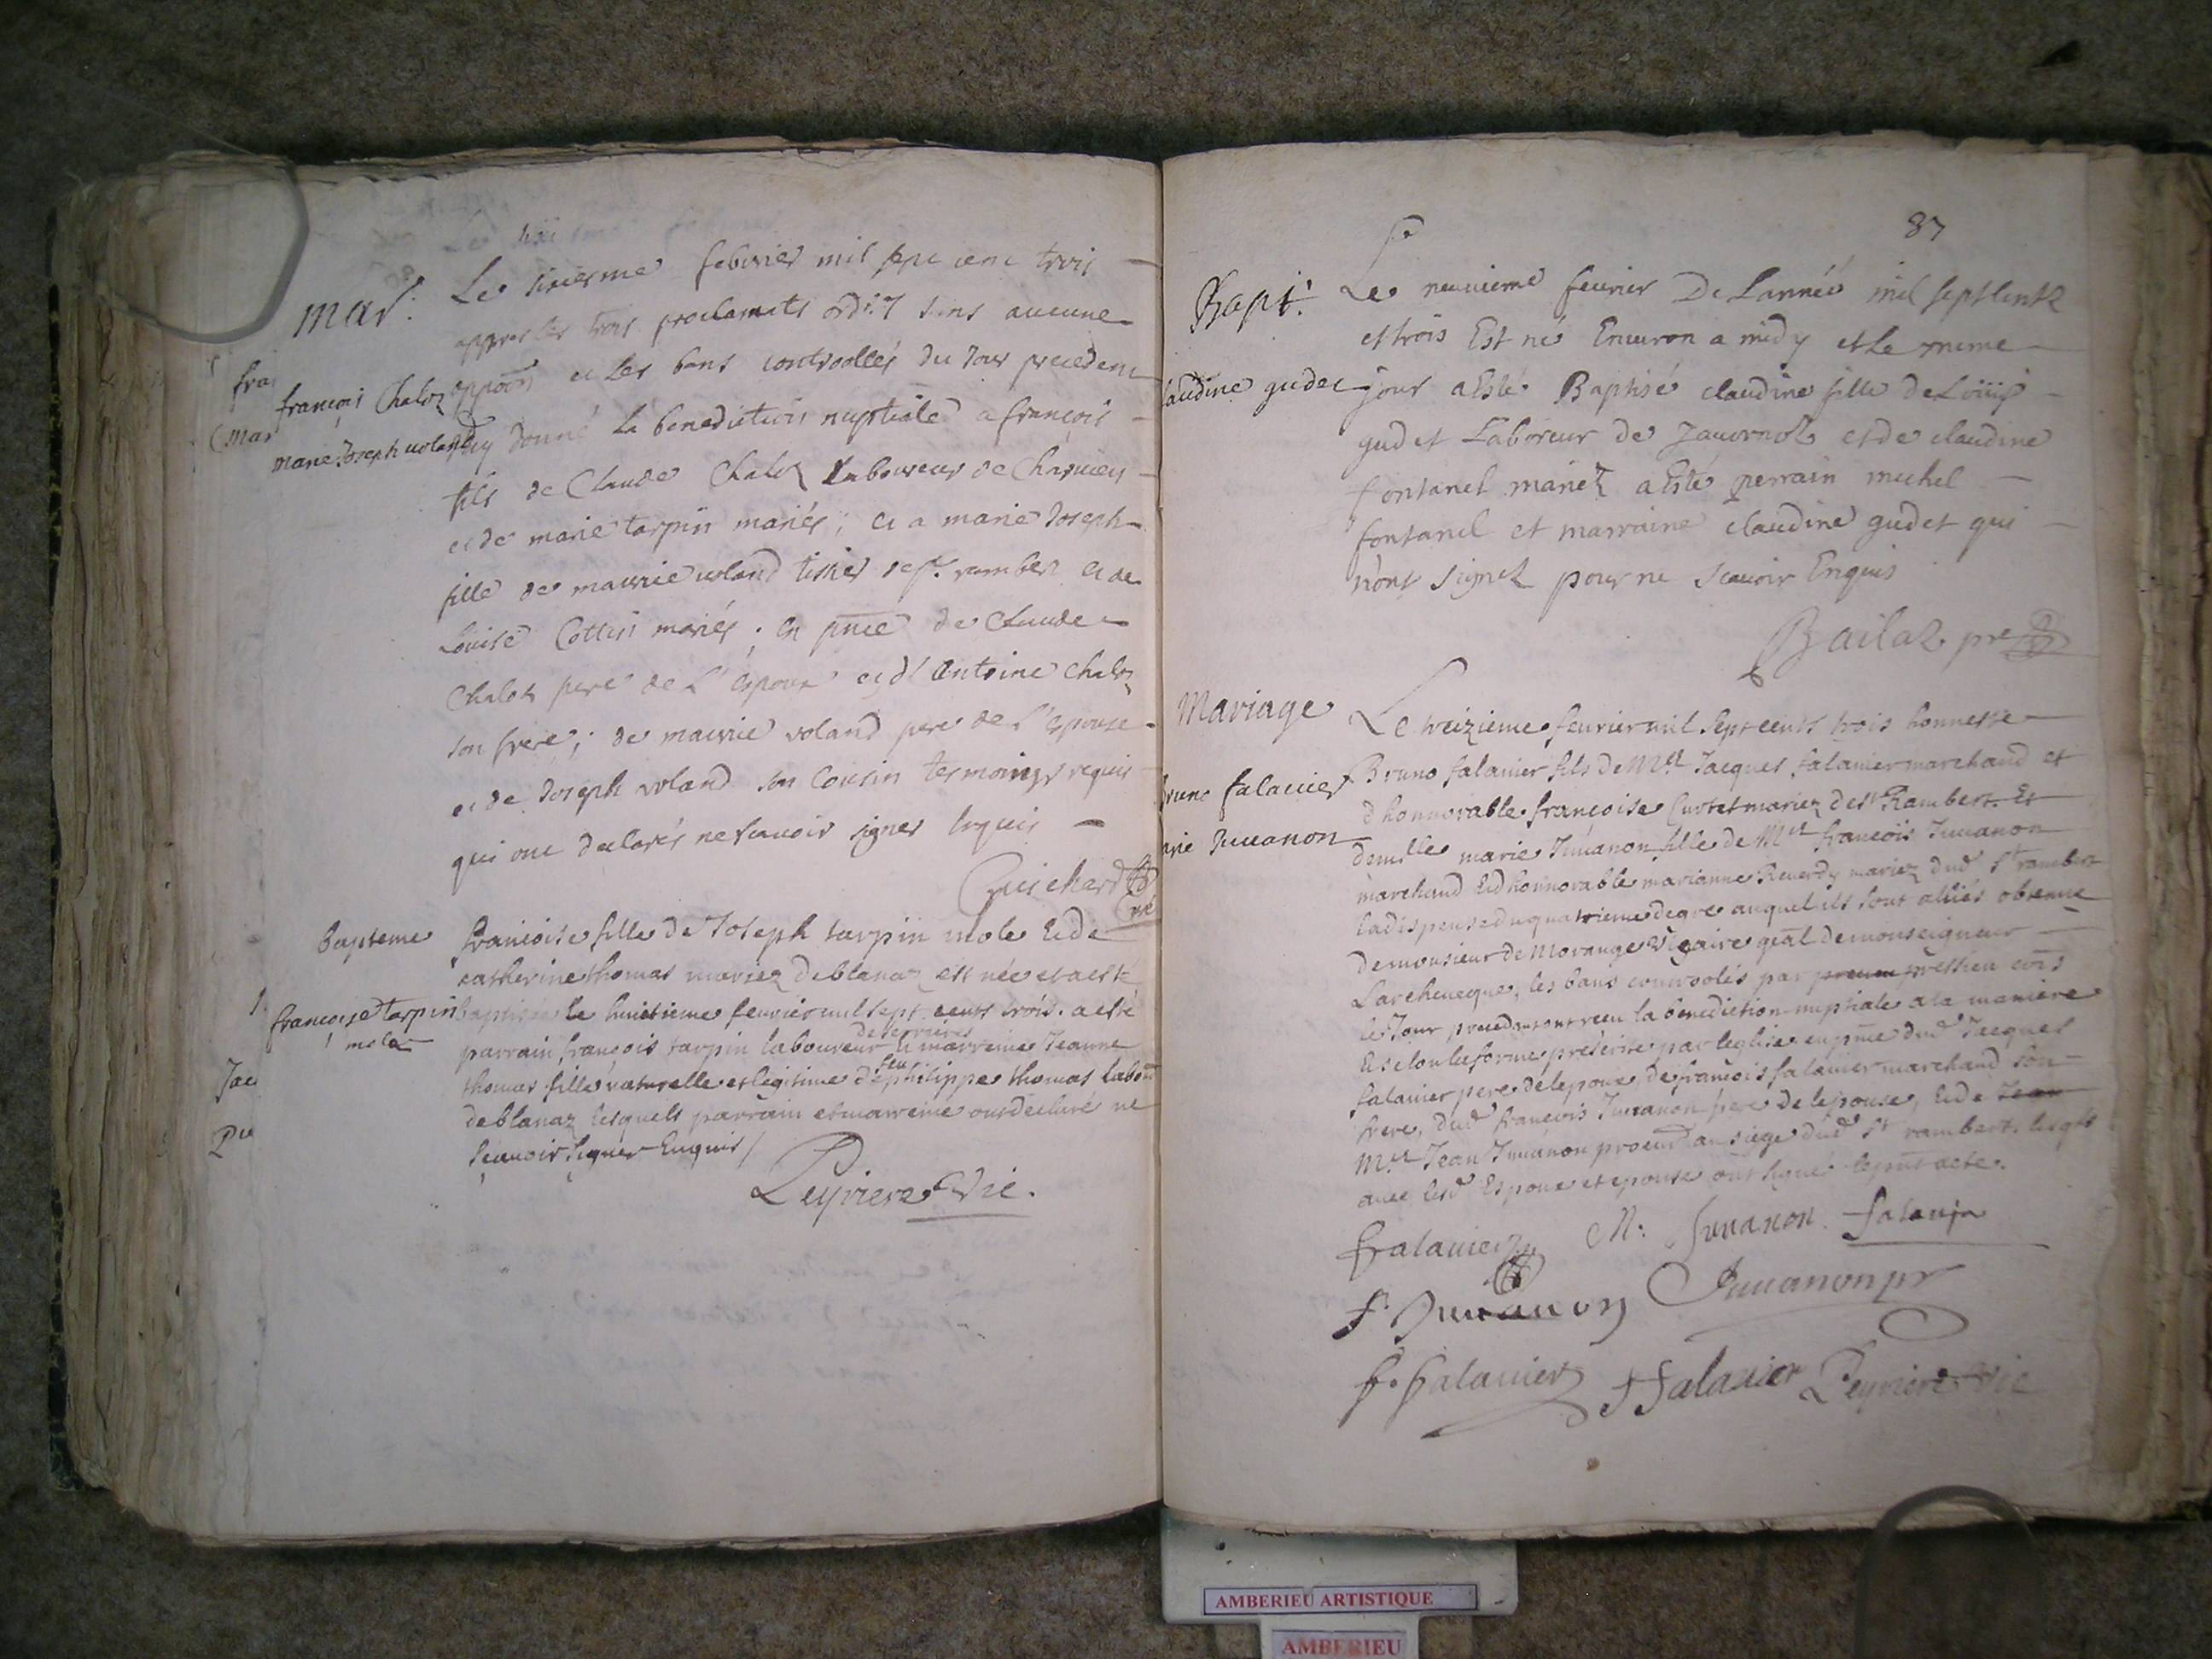 mar.
Le sixiesme febvrier mil sept cent trois
appres les trois proclamats ordres sans aucune
françois Chaloz
oppoon et les bans controollés du jour precedent
marie Joseph voland
J'ay donné la benediction nuptiale a françois
fils de Claude Chaloz Laboureur de
et de marie tarpin mariés, et a marie Joseph
fille de maurie voland tissier de st rambert et de
Louise Cottin mariés; en pnce de Claude
Chaloz pere de L'espoux et d'Antoine Chaloz
son frere; de maurie voland pere de L'espouse
et de Joseph voland son Cousin tesmoings requis
qui ont declarés ne scavoir signer Enquis
Guichard
curé
bapteme
francoise fille de Joseph tarpin mole Et de
catherine thomas mariez de blanaz est née et a esté
françoise tarpin
mole
baptisée le huictieme feuvrier mil sept cents trois. a esté
parrain francois tarpin laboureur et marreine Jeanne
thomas fille naturelle et legitime de feu philippe thomas labour
de blanaz lesquels parrain et marreine ont declaré ne
scavoir signer Enquis /
Peyriere Vic.
87
Bapt.
Le neuvieme fevrier De Lannéé mil sept Cents
et trois Est né Environ a midy et le meme
Claudine gudet
jour a Esté Baptisé claudine fille de Loüis
gudet Laboreur de Javornoz et de claudine
fontanel mariez a Esté perrain michel
fontanel et marraine claudine gudet qui
n'ont signez pour ne scavoir Enquis
Bailaz pre
Mariage
Le treizieme feuvrier mil Sept cents trois honneste
bruno falavier
Bruno falavier fils de Mre Jacques falavier marchand et
d honnorable francoise Curtet mariez de st Rambert. Et
marie Juuanon
demlle marie Juuanon fille de Mre francois Juuanon
marchand Et d honnorable marianne Reverdy mariez dud st rambert
la dispense du quatrieme degre auquel ils sont alliés obtenue
de monsieur de Morange vicaire gnal de monseigneur
Larchevecque, les bans
le Jour precedant ont receu la benediction nuptiale a la maniere
Et selon la forme prescrite par leglise en pnce dud Jacques
falavier pere de lepoux, de francois falavier marchand son
frere, dud francois Juuanon pere de lepouse, Et de Jean
Mre Jean Juuanon procur au siege dud st rambert. lesqls
avec lesd Espoux et epouse ont signé le pnt acte.
falavier M: Juuanon falavier
f. Juuanon Juuanon pr
f. falavier falavier Peyriere Vic
AMBERIEU ARTISTIQUE
AMBERIEU